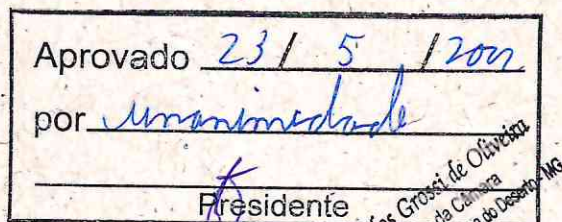 Aprovado 23 / 5 /
por unanimidade
Presidente
Grossi de Oliveira
da Câmara
do Deserto - MG